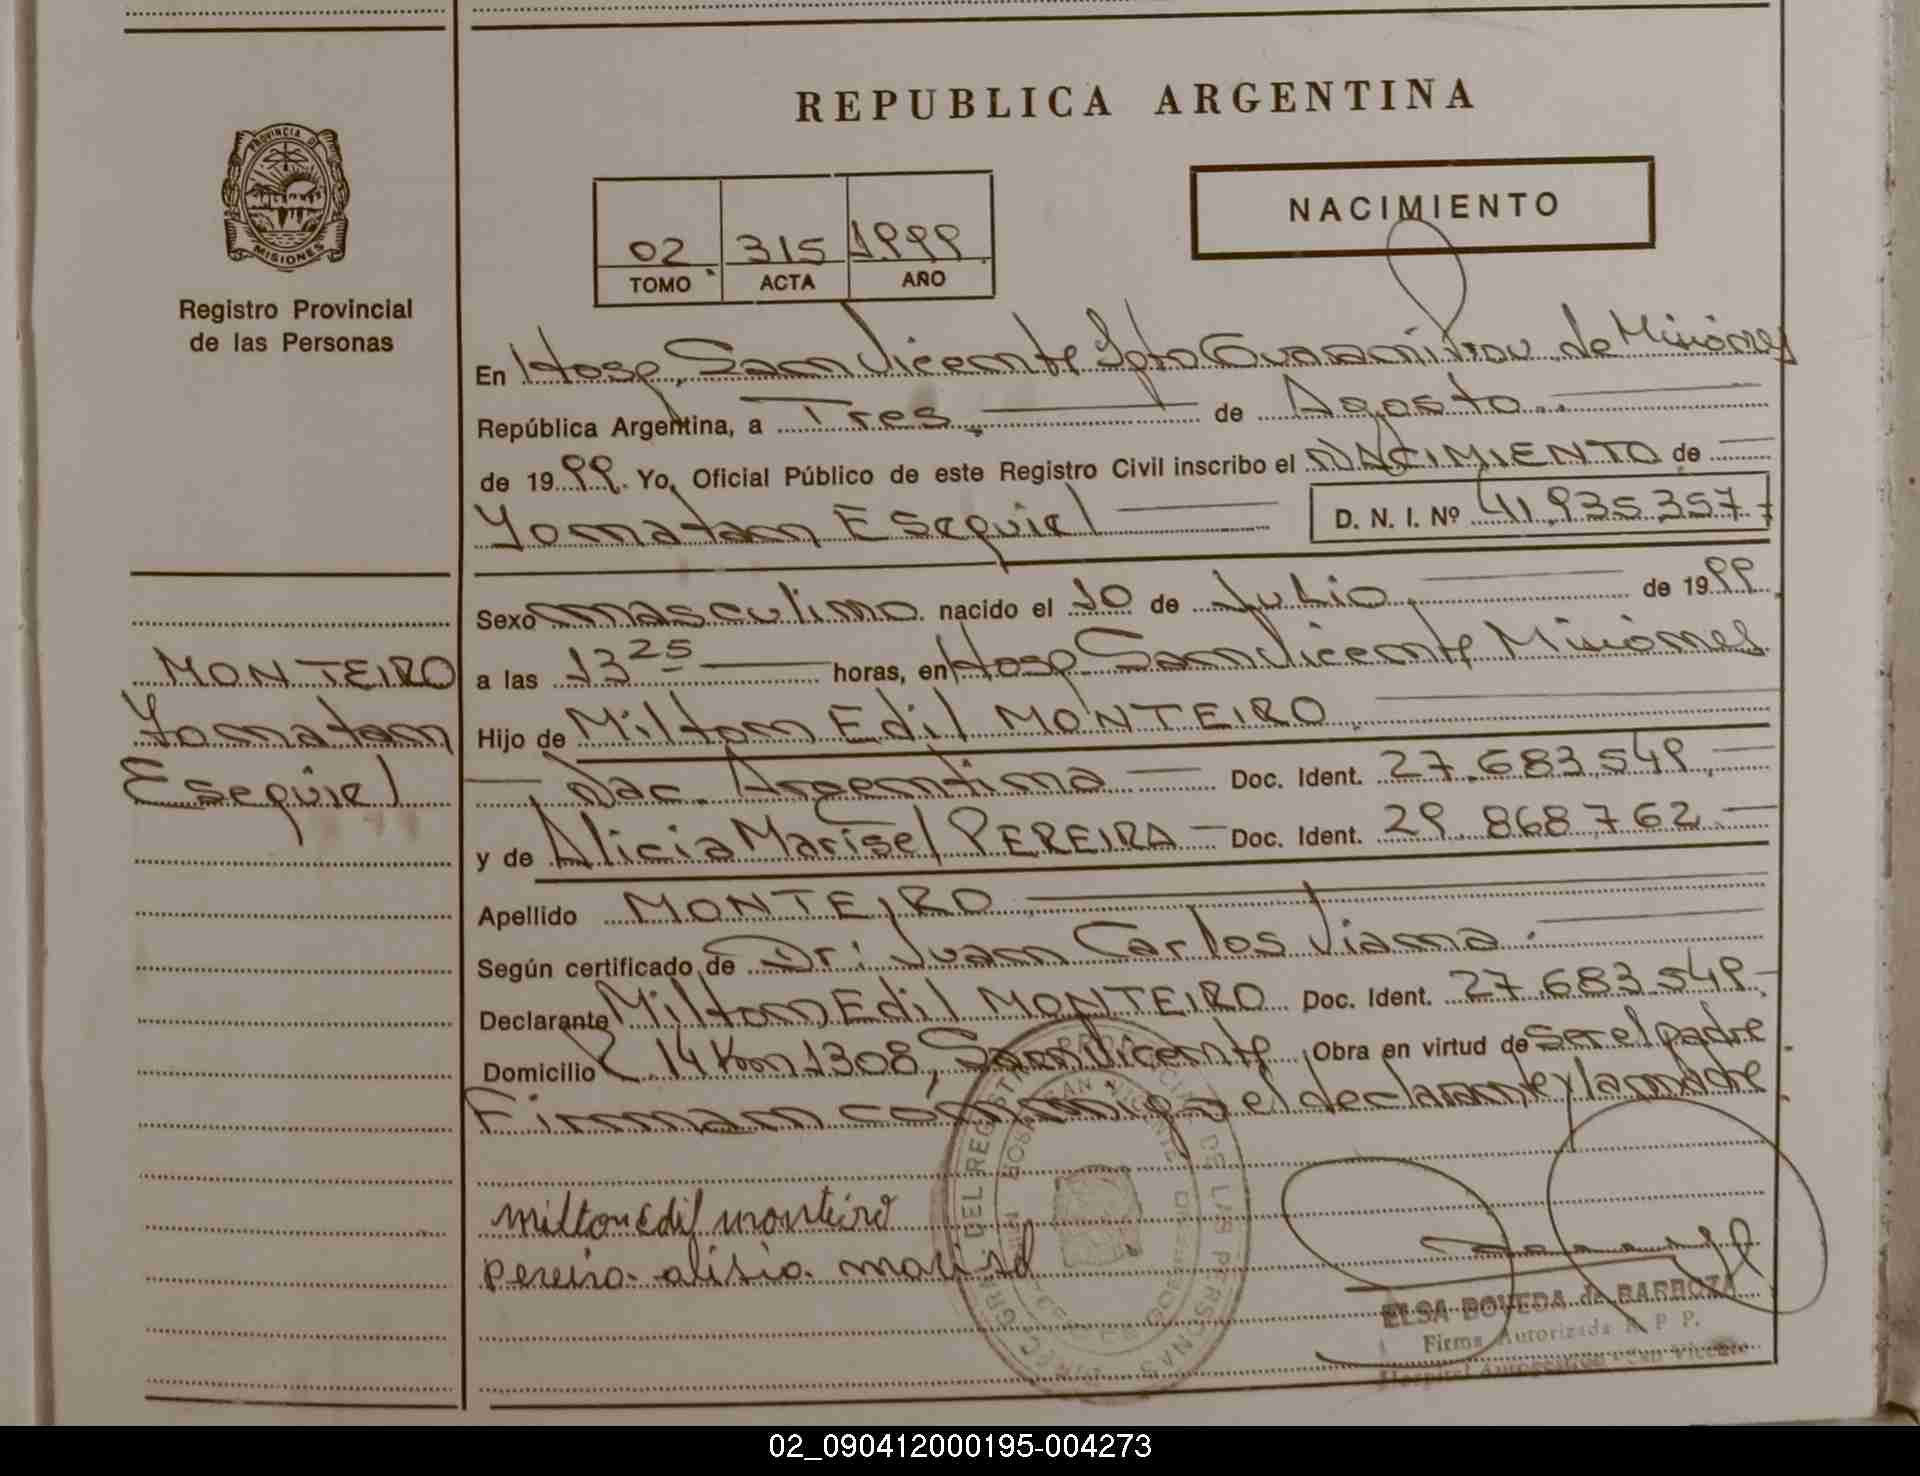 REPUBLICA ARGENTINA
PROVINCIA DE
MISIONES
Registro Provincial
de las Personas
NACIMIENTO
02 315 1999
TOMO ACTA AÑO
En Hosp. San Vicente Dpto Guaraní Prov. de Misiones
República Argentina, a Tres de Agosto
de 1999. Yo, Oficial Público de este Registro Civil inscribo el NACIMIENTO de
Yonatan Esequiel D. N. I. Nº 41.935.357
Sexo masculino nacido el 10 de Julio de 1999
MONTEIRO
Yonatan
Esequiel
a las 13 25 horas, en Hosp San Vicente Misiones
Hijo de Milton Edil MONTEIRO
Nac. Argentina Doc. Ident. 27.683.549
y de Alicia Marisel PEREIRA Doc. Ident. 29.868.762
Apellido MONTEIRO
Según certificado de Dr: Juan Carlos Viana
Declarante Milton Edil MONTEIRO Doc. Ident. 27.683.549
Domicilio R 14 Km 1308, San Vicente Obra en virtud de ser el padre
Firman conmigo el declarante y la madre
milton edil monteiro
pereira alisia marisel
ELSA BOVEDA de BARBOZA
Firma Autorizada R. P. P.
Hospital San Vicente
02_090412000195-004273